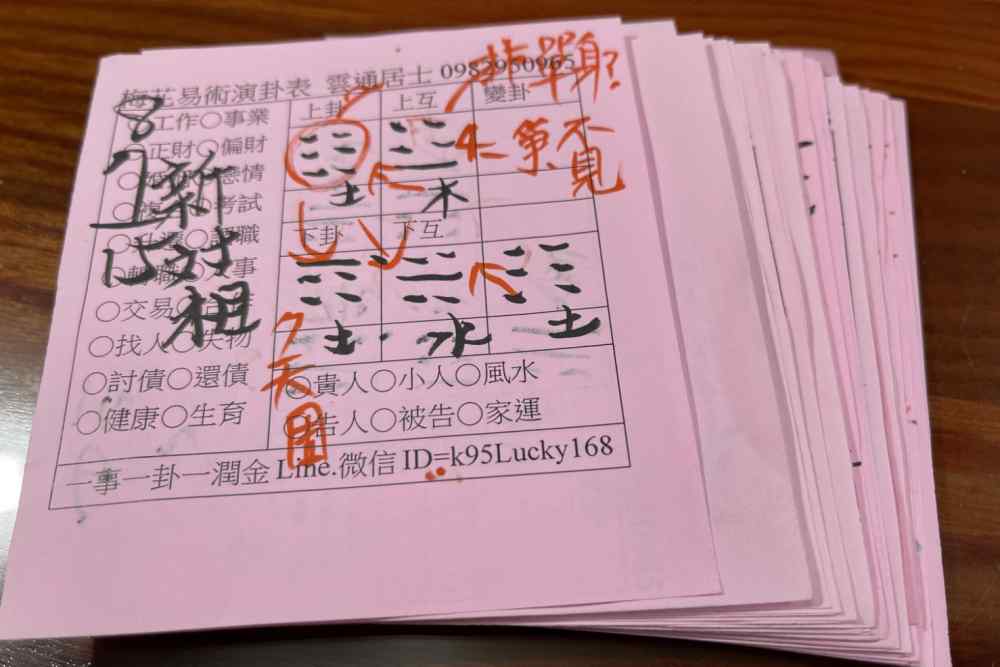 梅花易術演卦表 雲通居士 0982950965
工作○事業
正財○偏財
戀情
考試
轉職 人事
○交易
○找人○失物
○討債○還債
○健康○生育
上卦 上互 變卦
土 木
下卦 下互
土 水 土
貴人○小人○風水
告人○被告○家運
一事一卦一潤金 Line.微信 ID=k95Lucky168
8
7
15
新
討
租
非單身?
不見
7天